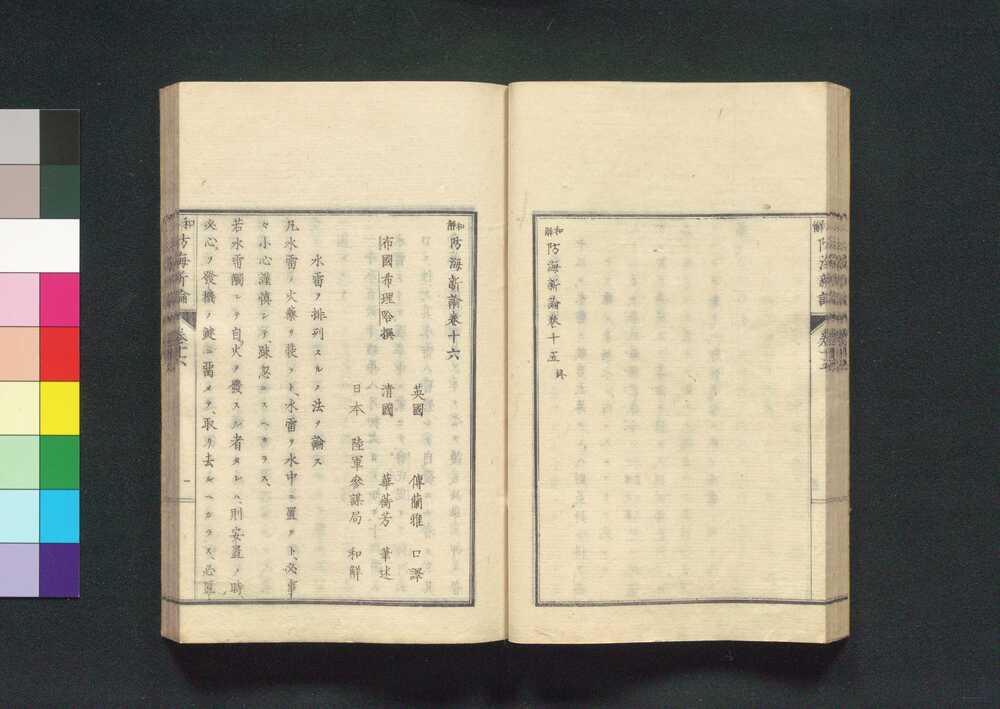 和解防海新論卷十五 終
和解防海新論卷十六
布國希理哈撰
英國 傅蘭雅 口譯
清國 華蘅芳 筆述
日本 陸軍參謀局 和解
水雷ヲ排列スルノ法ヲ論ス
凡水雷ノ火藥ヲ裝フト、水雷ヲ水中ニ置クト、必事
々小心謹慎シテ、疎忽ニスヘカラス、
若水雷觸レテ自火ヲ發スル者タレハ、則安置ノ時、
夾心ヲ發機ノ鍵ニ留メテ、取リ去ルヘカラス、必
和 防海新論 卷十六 一